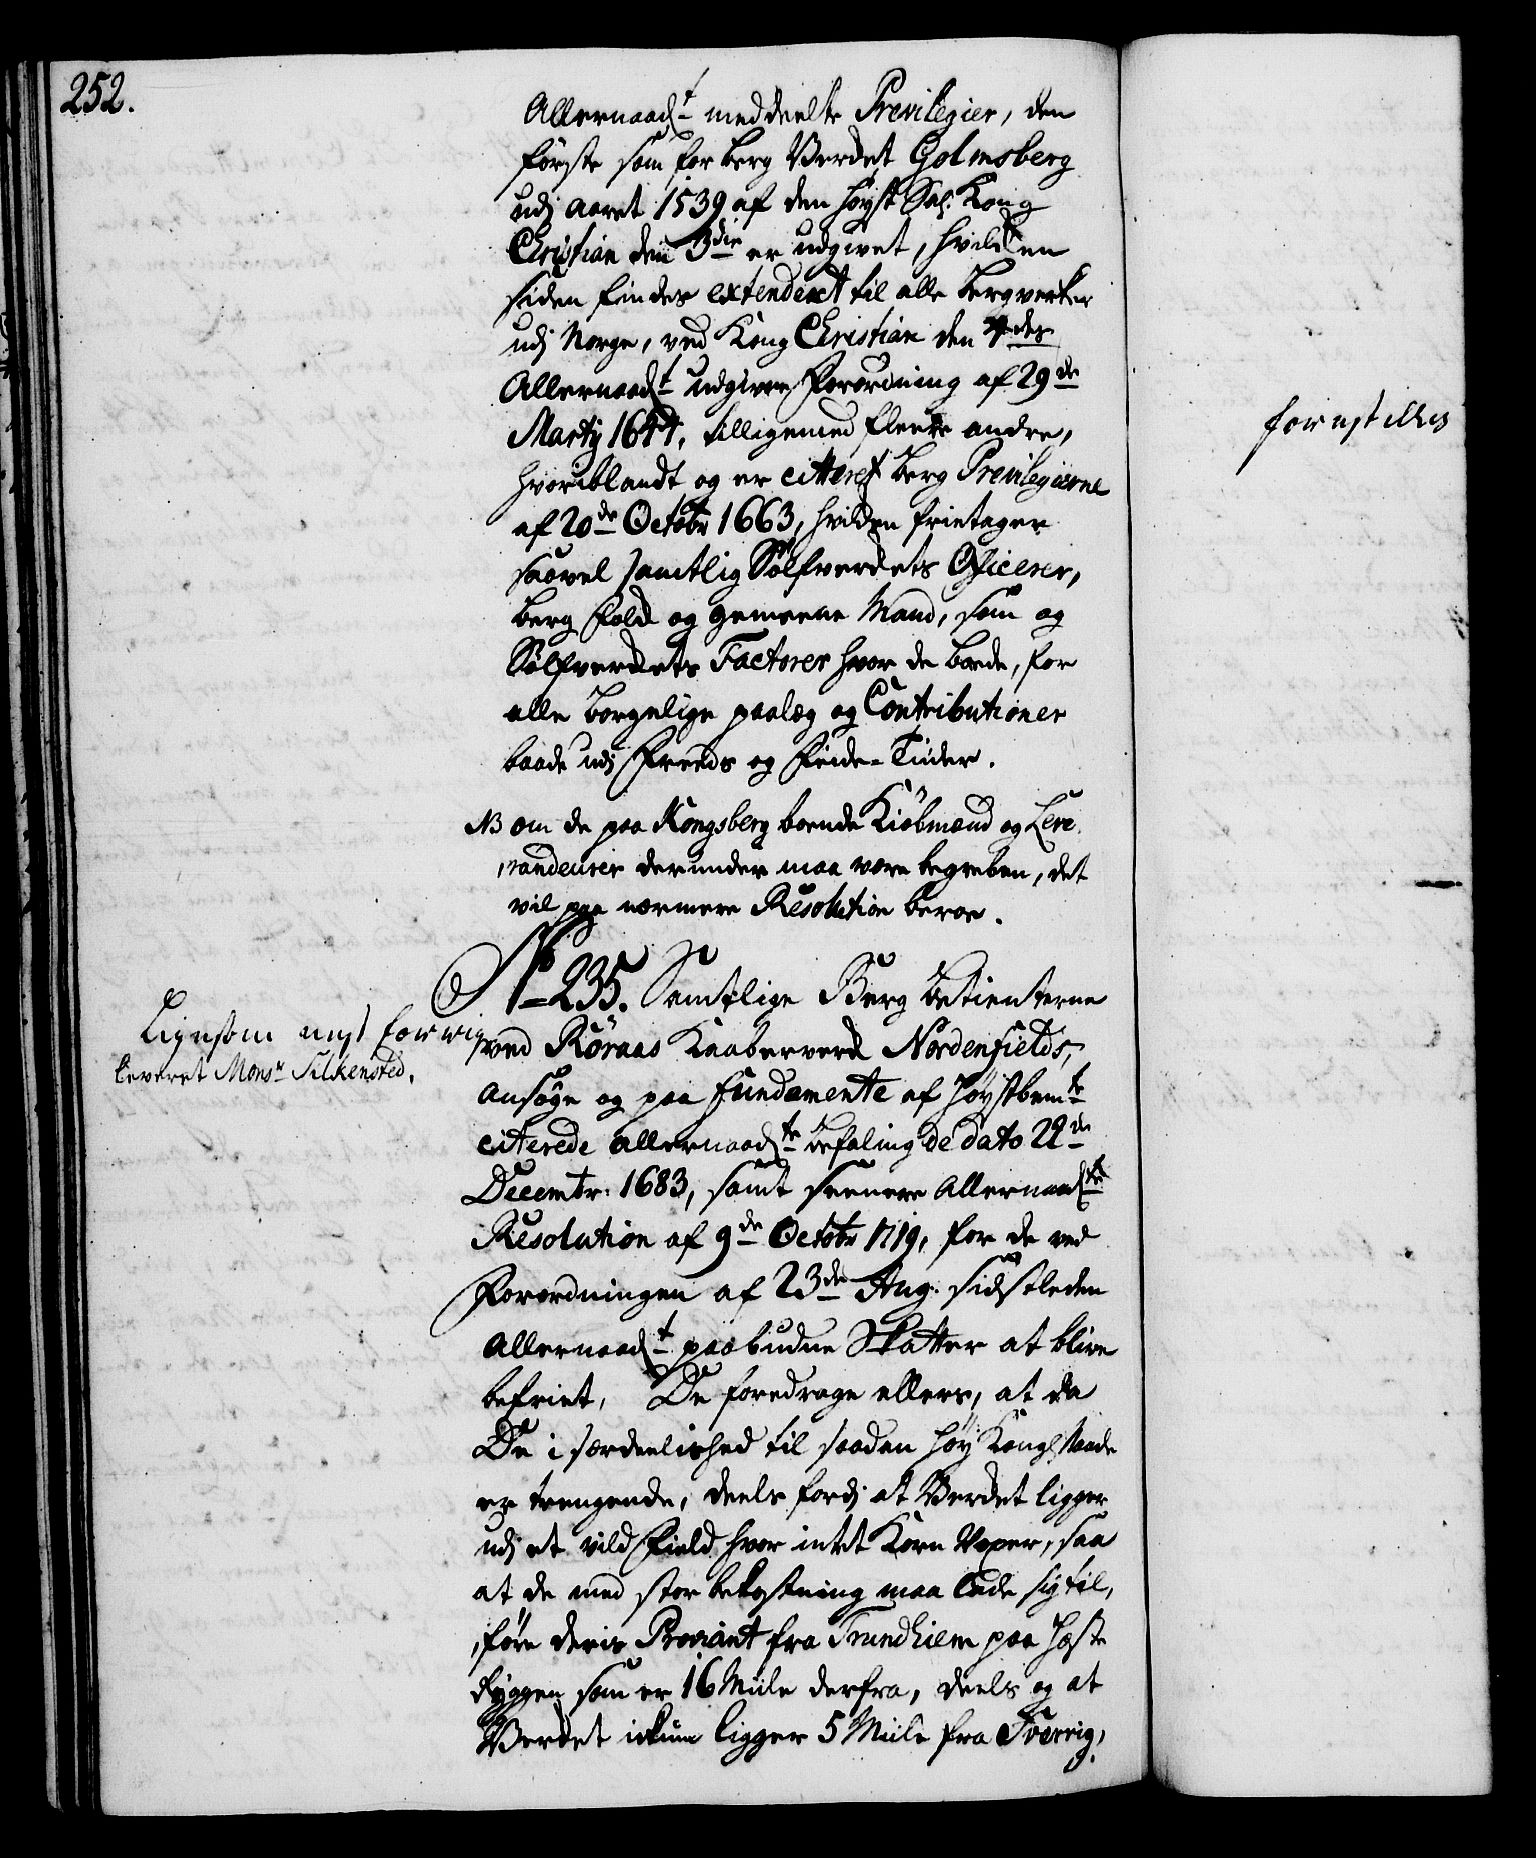 252.
Allernaad.t meddeelte Previlegier, den
første som for berg Verdet Golmsberg
udj Aaret 1539 af den Høyst Sal. Kong
Christian den 3die er udgivet, hvilken
siden findes extenderet til alle bergverker
udj Norge, ved Kong Christian den 4des
Allernaad.t udgivne Forordning af 29de
Martij 1644, tilligemed fleere andre,
hvoriblandt og er citteret berg Previlegierne
af 20de Octobr 1663, hvilken frietager
saavel samtlig Sølfverckets Officerer,
berg folck og gemeene Mand, som og
Sølfverckets Factorer hvor de boede, for
alle borgelige paalæg og Contributioner
baade udj Freeds og Feide-Tiider.
NB om de paa Kongsberg boende Kiøbmænd og Leve-
randeurer derunder maa være begreben, det
vil paa nærmere Resolution beroe.
No 235. Samtlige Berg betienterne
ved Røraas Kaaberverck Nordenfields,
Ansøge og paa fundamente af Høystbemte
citerede allernaad.te befaling de dato 22de
Decembr. 1683, samt seenere Allernaad.te
Resolution af 9de Octobr 1719, for de ved
Forordningen af 23de Aug. sidstleden
Allernaad.t paabudne Skatter at blive
befriet, De foredrage ellers, at da
De i særdeelished til saadan høy Kongl. Naade
er trengende, deels fordj at Vercket ligger
udj et vild Field hvor intet Korn Voxer, saa
at de med stor bekostning maa lade sig til-
føre deris Proviant fra Trundhiem paa Heste
Ryggen som er 16 Miile derfra, deels og at
Vercket ickun ligger 5 Miile fra Sverrig,
Ligesom nest forrige
leveret Monsr Silkensted.
forestilles